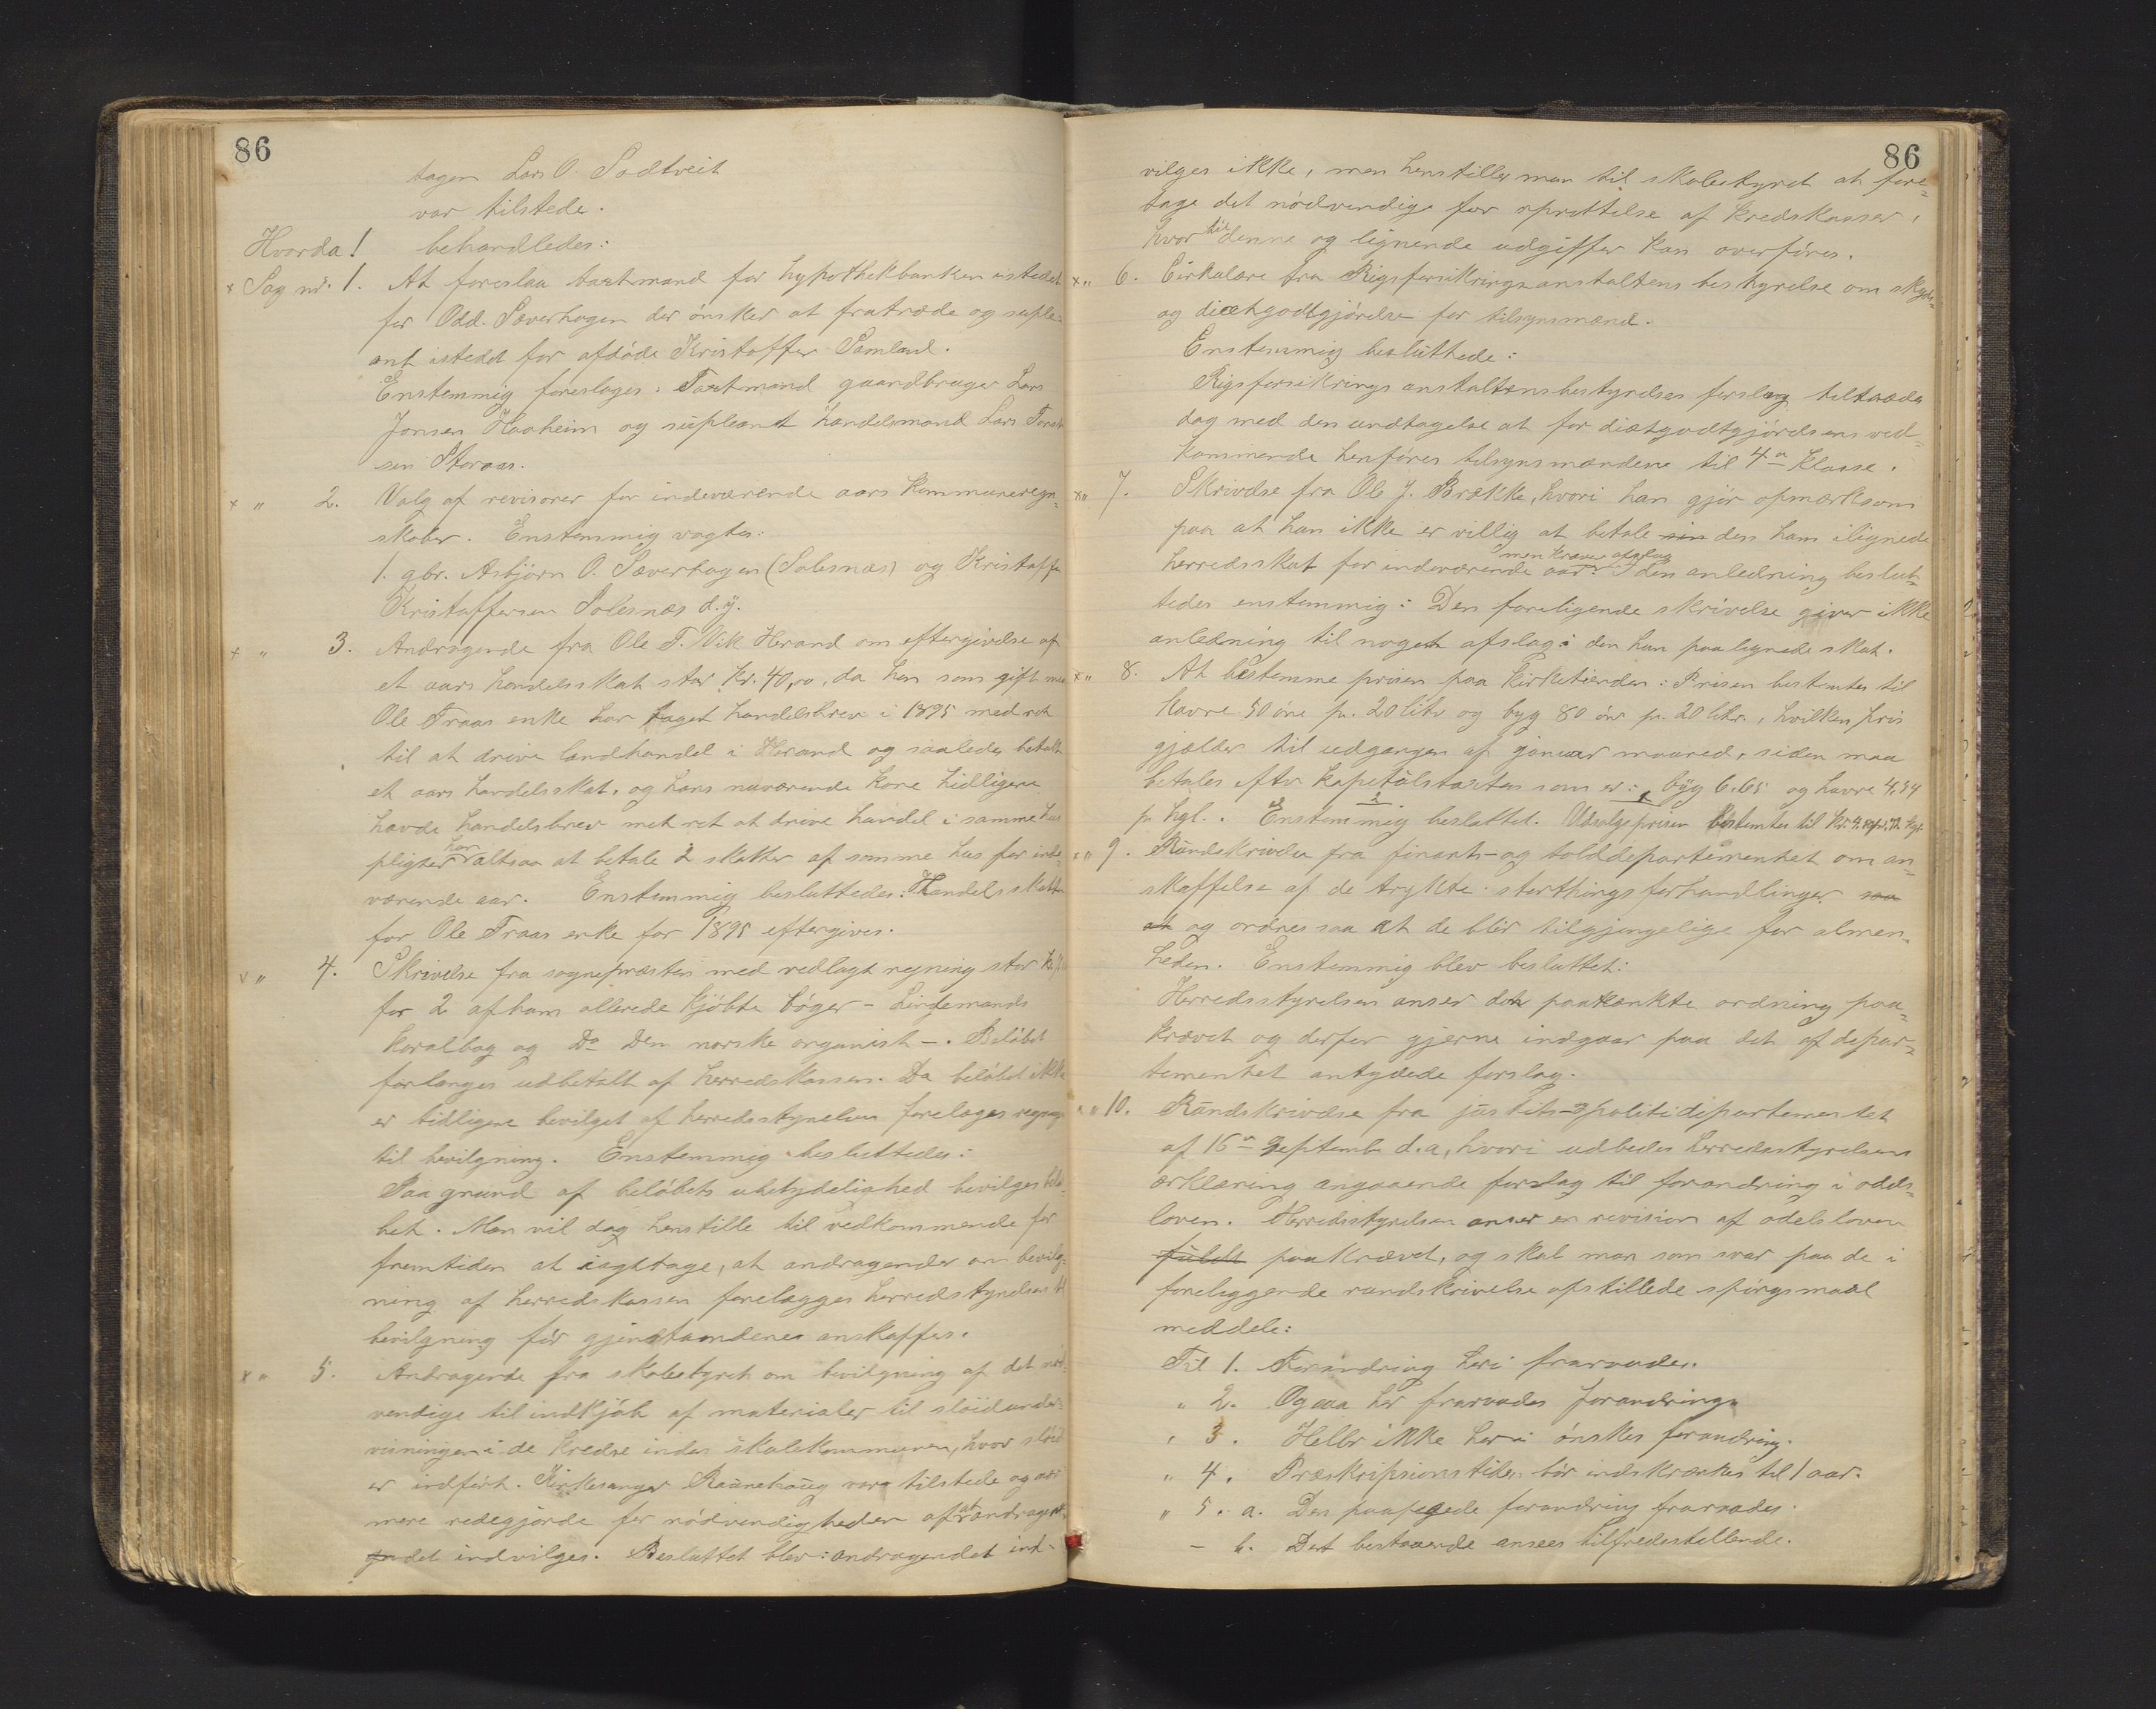 86
tagen Lars O. Sodtveit
var tilstede.
Hvorda! behandledes:
x Sag nr. 1. At foreslaa taxtmand for hypothekbanken istedet
for Odd. Sæverhagen der ønsker at fratræde og suple-
ant istedet for afdøde Kristoffer Samland.
Enstemmig foreslages: Taxtmand gaardbruger Lars
Jonsen Haaheim og supleant handelsmand Lars
sen Storaas.
x " 2. Valg af revisorer for indeværende aars kommuneregn-
skaber. Enstemmig vagtes:
1. gbr. Asbjørn O. Sæverhagen (Solesnæs) og Kristoffer
Kristoffersen Solesnæs d.y.
x " 3. Andragende fra Ole T. Vik Herand om eftergivelse af
et aars handelsskat stor kr. 40,00, da han som gift med
Ole Traas enke har taget handelsbrev i 1895 med ret
til at drive landhandel i Herand og saaledes betalt
et aars handelsskat, og hans nuværende kone tidligere
havde handelsbrev met ret at drive handel i samme hus
pligter har altsaa at betale 2 skatter af samme hus for inde-
værende aar. Enstemmig besluttedes: Handelsskatten
for Ole Traas enke for 1895 eftergives.
v " 4. Skrivelse fra sognepræsten med vedlagt regning stor kr.
for 2 af ham allerede kjøbte bøger - Lindemands
koralbog og Do Den norske organist -. Beløbet
forlanges udbetalt af herredskassen. Da beløbet ikke
er tidligere bevilget af herredsstyrelsen forelæges regningen
til bevilgning. Enstemmig besluttedes:
Paa grund af beløbets ubetydelighed bevilges belø-
bet. Man vil dog henstille til vedkommende for
fremtiden at iagttage, at andragender om bevilg-
ning af herredskassen forelægges herredstyrelsen til
bevilgning før gjenstandenes anskaffes.
x " 5. Andragende fra skolestyret om bevilgning af det nød-
vendige til indkjøb af materialer til sløidunder-
visningen i de kredse inden skolekommunen, hvor sløid
er indført. Kirkesanger Raunehaug var tilstede og
mere redegjørde for nødvendigheden af at andragen-
det indvilges. Besluttet blev: andragendet ind-
86
vilges ikke, men henstiller man til skolestyret at fore-
tage det nødvendige for oprettelse af kredskasser,
hvor til denne og lignende udgifter kan overføres.
x " 6. Cirkulære fra Rigsforsikringsanstaltens bestyrelse om skyds-
og diætgodtgjørelse for tilsynsmænd.
Enstemmig besluttede:
Rigsforsikringsanstaltensbestyrelses forslag tiltrædes
dog med den undtagelse at for diætgodtgjørelsens ved-
kommende henføres tilsynsmændene til 4de klasse.
x " 7. Skrivelse fra Ole J. Brække, hvori han gjør opmærksom
paa at han ikke er villig at betale sin den ham ilignede
herredsskat for indeværende aar men kræver afslag. I den anledning beslut-
tedes enstemmig: Den foreligende skrivelse giver ikke
anledning til noget afslag i den han paalignede skat.
x " 8. At bestemme prisen paa kirketienden: Prisen bestemtes til
havre 50 øre pr. 20 liter og byg 80 øre pr. 20 liter, hvilken pris
gjælder til udgangen af januar maaned, siden maa
betales efter kapitelstaxten som er: byg 6.65 og havre 4.34
pr. hgl. Enstemmig besluttet. Udsalgsprisen bestemtes til kr. 4.
x " 9. Rundskrivelse fra finants- og tolddepartementet om an-
skaffelse af de trykte storthingsforhandlinger saa
at og ordnes saa at de blir tilgjengelige for almen-
heden. Enstemmig blev besluttet:
Herredsstyrelsen anser den paatænkte ordning paa-
krævet og derfor gjerne indgaar paa det af depar-
tementet antydede forslag.
" 10. Rundskrivelse fra justits- og politidepartementet
af 16de september d.a, hvori udbedes herredsstyrelsens
erklæring angaaende forslag til forandring i odels-
loven. Herredsstyrelsen anser en revision af odelsloven
fuldt paakrævet, og skal man som svar paa de i
foreliggende rundskrivelse opstillede spørgsmaal
meddele:
Til 1. Forandring heri fraraades.
" 2. Ogsaa her fraraades forandring.
" 3. Heller ikke heri ønskes forandring.
" 4. Præskriptionstiden bør indskrænkes til 1 aar.
" 5. a. Den paapegede forandring fraraades.
- b. Det bestaaende ansees tilfredsstillende.